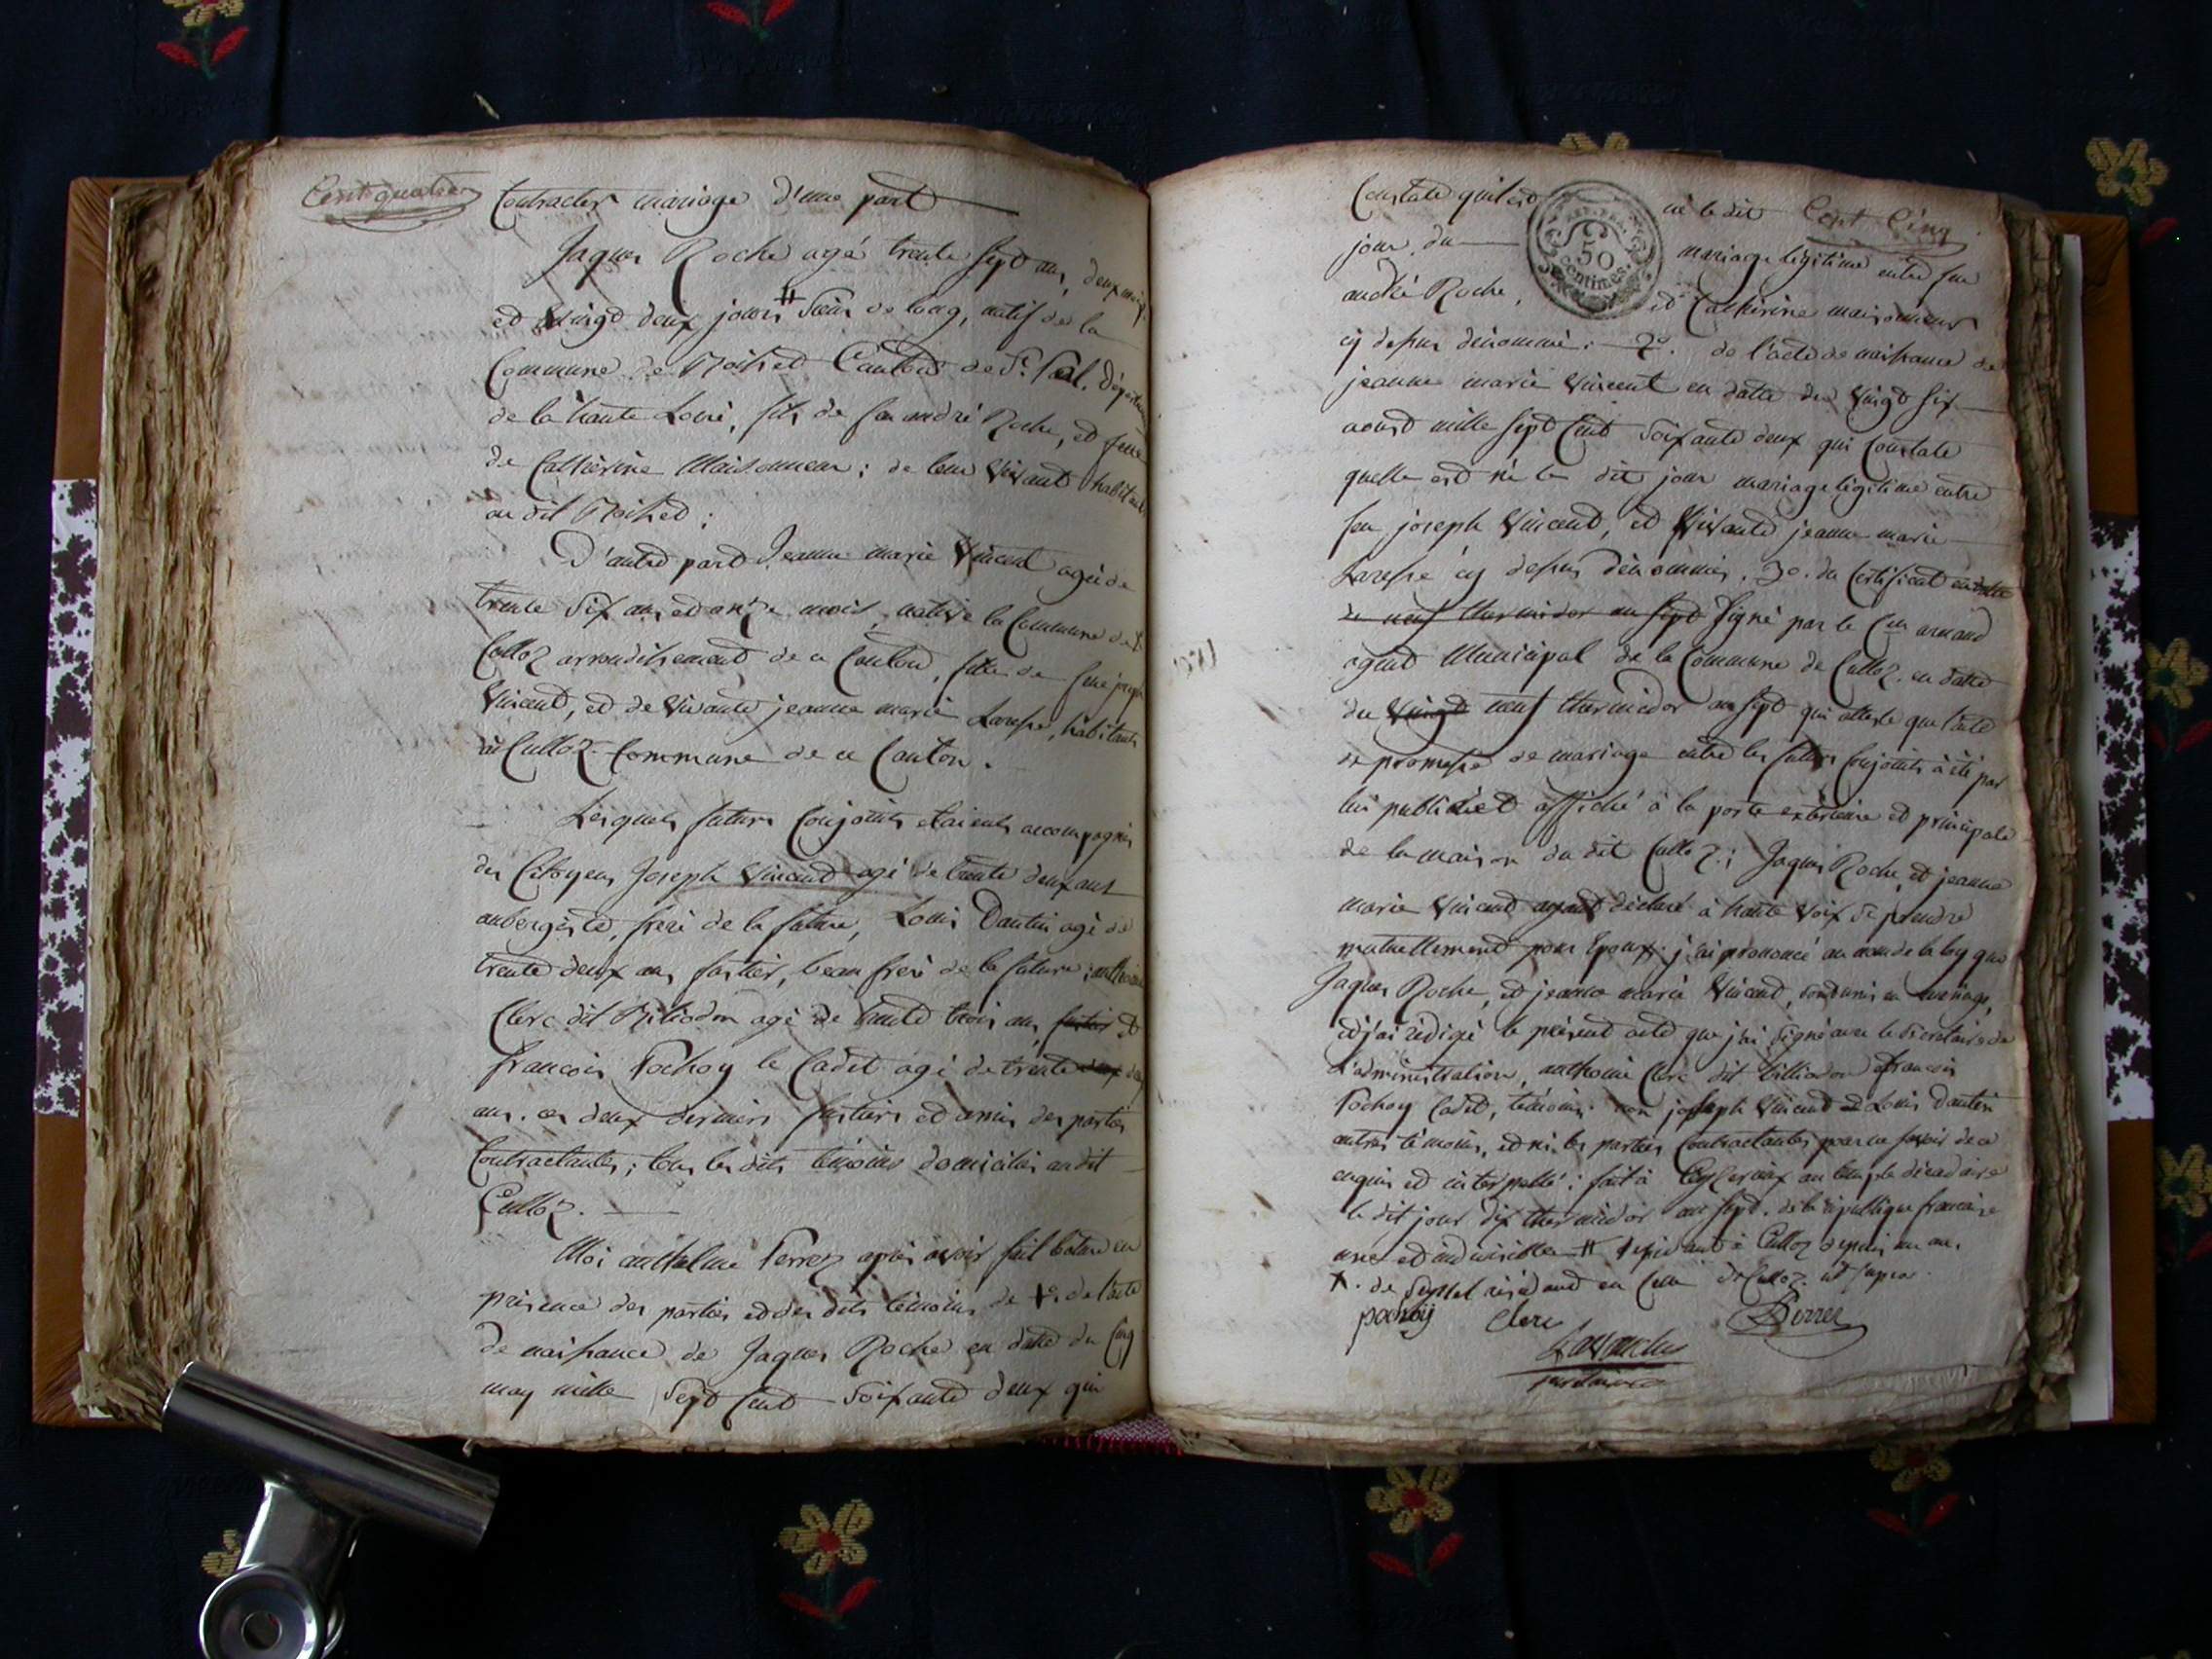 Cent quatre
Contracter mariage d'une part
Jaques Roche agé trente sept ans, deux mois
et vingt deux jours # Sieur de long, natif de la
Commune de Rosired Canton de St. Pal. départem
de la haute Loire, fils de feu andré Roche, et feue
de Catherine Maisonneux; de leur vivant habitants
au dit
D'autre part Jeanne marie Vincent agée de
trente six ans et onze mois, native la Commune de #
Culloz arrondissement de ce Canton, fille de feu joseph
Vincent, et de vivante jeanne marie Laresse, habitants
à Culloz Commune de ce Canton.
Lesquels futurs Conjoints etaients accompagnés
des Citoyens Joseph Vincend agé de trente deux ans
aubergiste, frère de la future, Louis Dantin agé de
trente deux ans, beau frere de la future; anthoine
Clerc dit agé de trente trois ans, et
francois Pochoy le Cadet agé de trente deux
ans. ces deux derniers et amis des parties
Contractantes; tous les dits témoins domiciliés au dit
Culloz.
Moi anthelme Perrez après avoir fait lecture en
présence des parties et des dits témoins de 1°. de l'acte
de naissance de Jaques Roche en date du Cinq
may mille Sept Cent Soixante deux qui
Cent Cinq
Constate quil est né le dit
RÉP. FRA.
50
centimes.
jour du mariage légitime entre feu
andré Roche, et Catherine maisonneux
cy dessus dénommé: 2°. de l'acte de naissance de
jeanne marie Vincent en datte du vingt six
aoust mille sept Cent Soixante deux qui Constate
quelle est né le dit jour mariage légitime entre
feu joseph Vincend, et vivante jeanne marie
Laresse cy dessus dénommés. 3°. du Certificat en datte
de neuf thermidor an sept Signé par le Cen arnaud
agent Municipal de la Commune de Culloz. en datte
du vingt neuf thermidor an sept qui atteste que l'acte
de promesse de mariage entre les futurs Conjoints à été par
lui publié et affiché à la porte extérieure et principale
de la maison du dit Culloz.; Jaques Roche, et jeanne
marie Vincend ayant déclaré à haute voix se prendre
mutuellement pour Epoux. j'ai prononcé au nom de la loy que
Jaques Roche, et jeanne marie Vincend, sont unis en mariage,
et j'ai rédigé le présent acte que j'ai signé avec le Secretaire de
L'administration, anthoine Clerc dit billiodon et francois
Pochoy Cadet, témoins. non joseph Vincend et Louis Dantin
autres témoins, et ni les parties Contractantes pour ne savoir de ce
enquis et interpellé: fait à Ceyzerieux au temple décadaire
le dit jour dix thermidor an sept. de la république francaise
une et indivisible # résidant à Culloz depuis un an.
+. de Seyssel résidand en celui de Culloz. ut supra
pochoy Clerc Perrez
secretaire